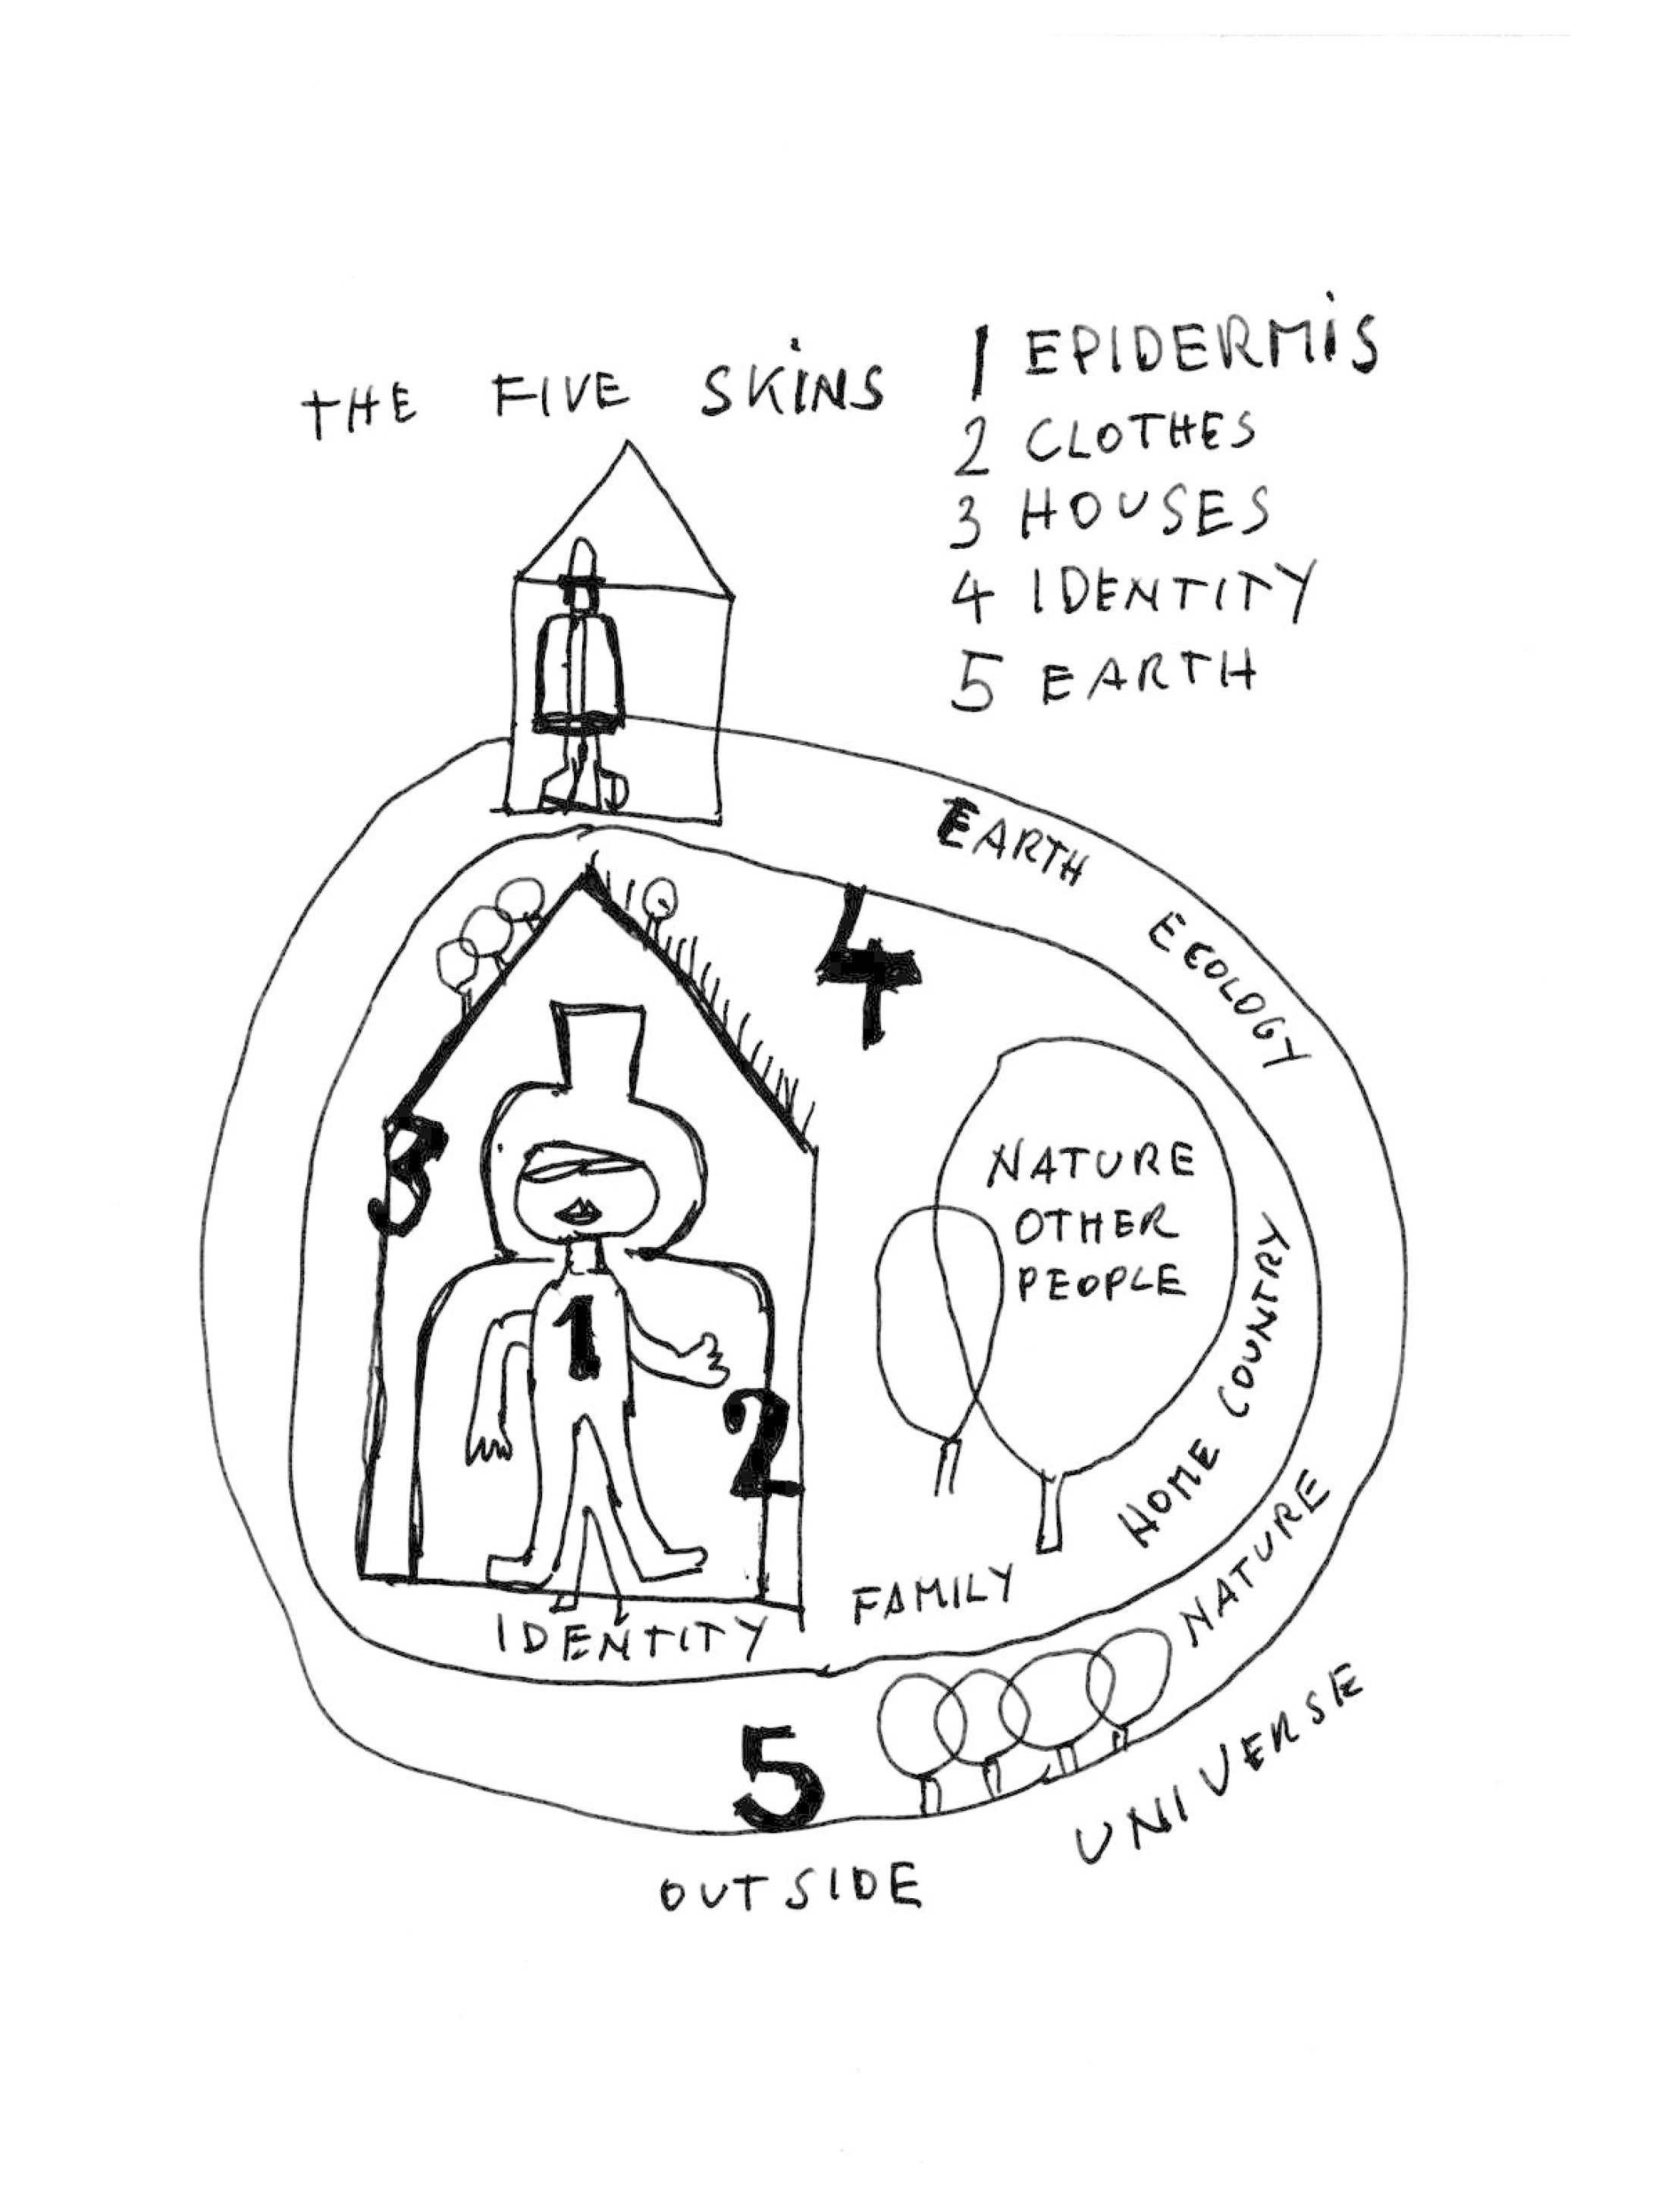 THE FIVE SKINS
1 EPIDERMIS
2 CLOTHES
3 HOUSES
4 IDENTITY
5 EARTH
EARTH
ECOLOGY
4
NATURE
OTHER
PEOPLE
3
1
2
HOME COUNTRY
FAMILY
IDENTITY
NATURE
5
UNIVERSE
OUTSIDE